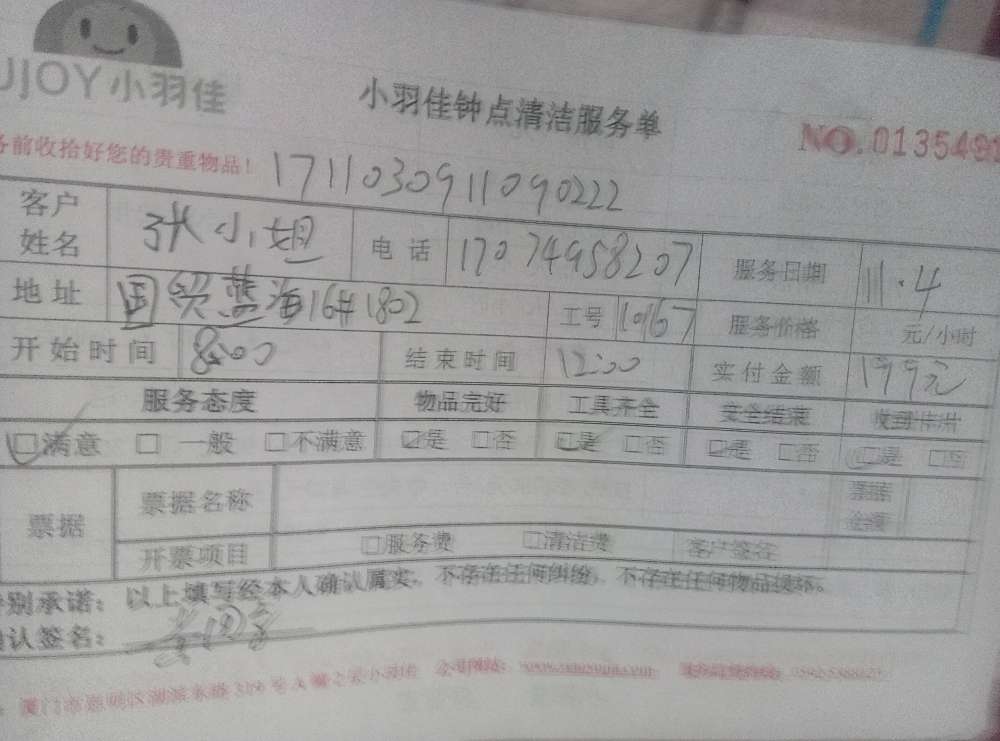 UJOY小羽佳
小羽佳钟点清洁服务单
NO.013549
务前收拾好您的贵重物品!
1711030911090222
客户姓名 张小姐 电话 17074958207 服务日期 11.4
地址 国贸蓝海16#1802 工号 10167 服务价格 元/小时
开始时间 8:00 结束时间 12:00 实付金额 199元
服务态度 物品完好 工具齐全 安全结束 收到卡片
☑满意 □一般 □不满意 ☑是 □否 ☑是 □否 ☑是 □否 ☑是 □否
票据 票据名称 票据金额
开票项目 □服务费 □清洁费 客户签名
特别承诺: 以上填写经本人确认属实。不存在任何纠纷,不存在任何物品损坏。
确认签名:
厦门市思明区湖滨东路319号A幢之 小羽佳 公司网站: